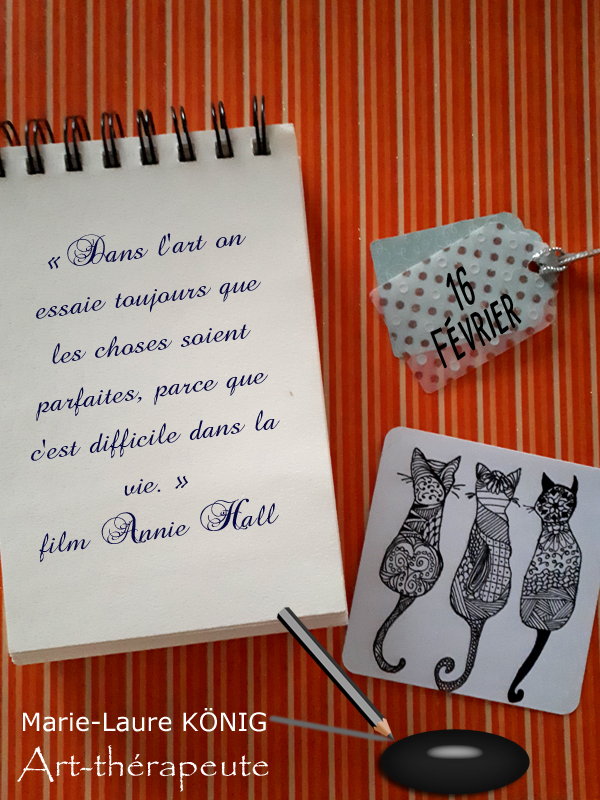 « Dans l'art on
essaie toujours que
les choses soient
parfaites, parce que
c'est difficile dans la
vie. »
film Annie Hall
16
FÉVRIER
Marie-Laure KÖNIG
Art-thérapeute